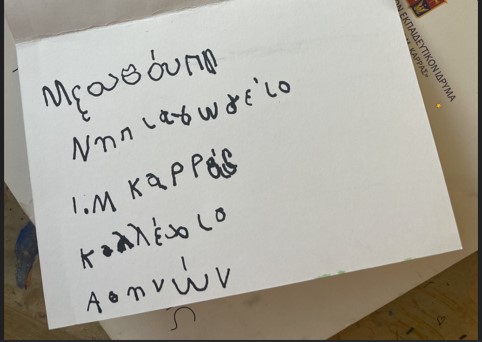 Νηπιαγωγείο
Ι.Μ Καρράς
Κολλέγιο
Αθηνών
ΕΚΠΑΙΔΕΥΤΙΚΟΝ ΙΔΡΥΜΑ
ΚΑΡΡΑΣ»